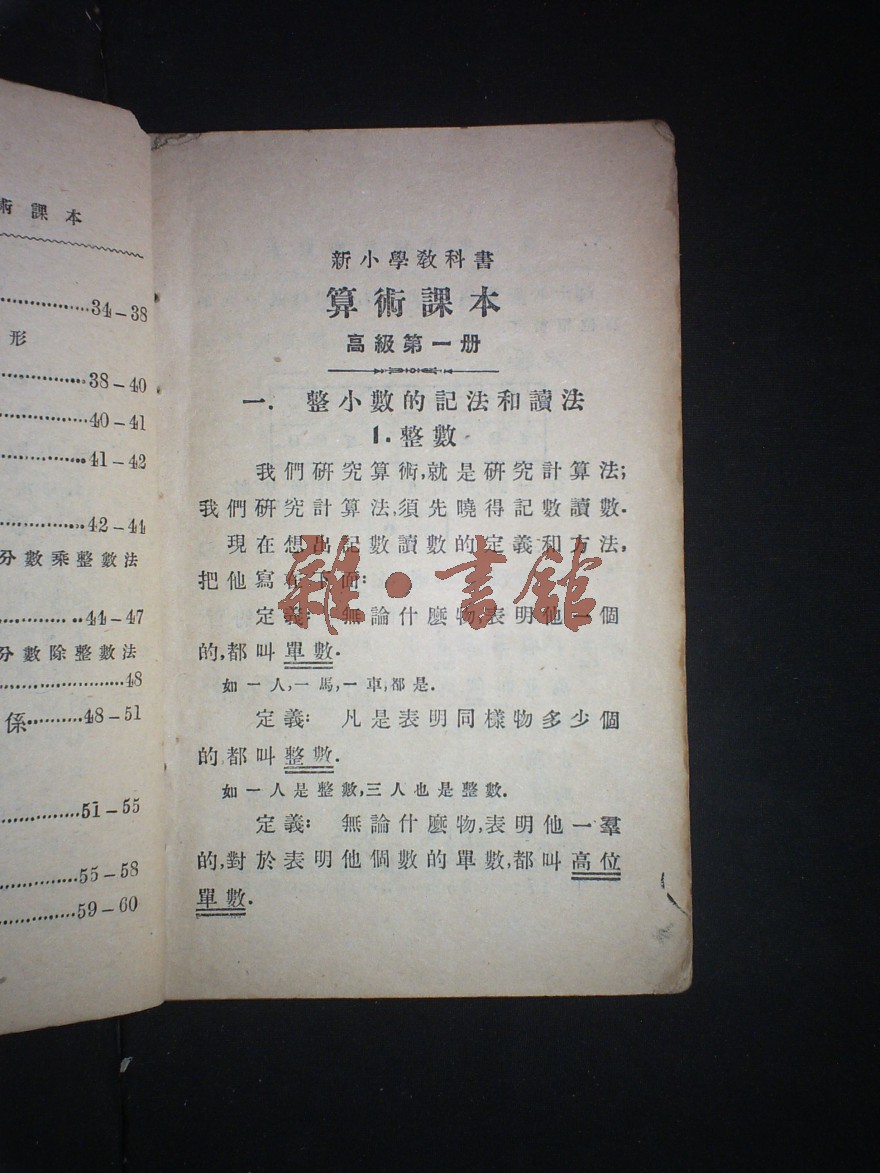 術課本
34–38
形
38–40
40–41
41–42
42–44
分數乘整數法
44–47
分數除整數法
48
係 48–51
51–55
55–58
59–60
新小學教科書
算術課本
高級第一册
一. 整小數的記法和讀法
1. 整數
我們研究算術,就是研究計算法;
我們研究計算法,須先曉得記數讀數.
現在想出記數讀數的定義和方法,
把他寫在下面:
定義: 無論什麼物,表明他一個
的,都叫單數.
如一人,一馬,一車,都是.
定義: 凡是表明同樣物多少個
的,都叫整數.
如一人是整數,三人也是整數.
定義: 無論什麼物,表明他一羣
的,對於表明他個數的單數,都叫高位
單數.
雜·書館